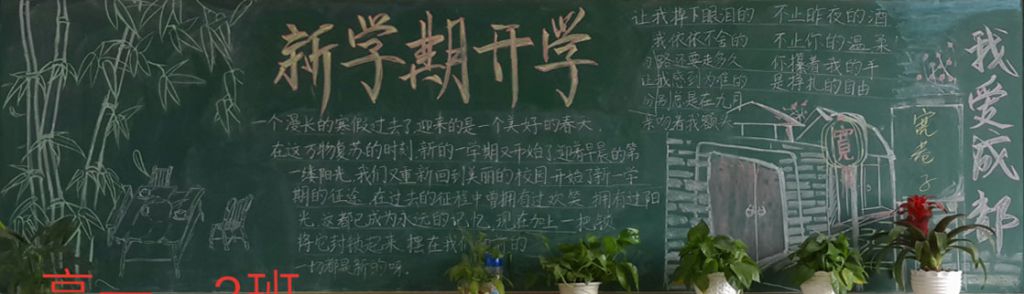 新学期开学
一个漫长的寒假过去了,迎来的是一个美好的春天,
在这万物复苏的时刻,新的一学期又开始了,迎着早晨的第
一缕阳光,我们又重新回到美丽的校园开始了新一学
期的征途,在过去的征程中曾拥有过欢笑,拥有过阳
光,这都已成为永远的记忆,现在加上一把锁
将它封锁起来,摆在我们面前的
一切都是新的呀。
让我掉下眼泪的 不止昨夜的酒
我依依不舍的 不止你的温柔
路还要走多久 你攥着我的手
让我感到为难的 是挣扎的自由
分别总是在九月
亲吻着我额头
宽
宽巷子
我爱成都
高一 2班